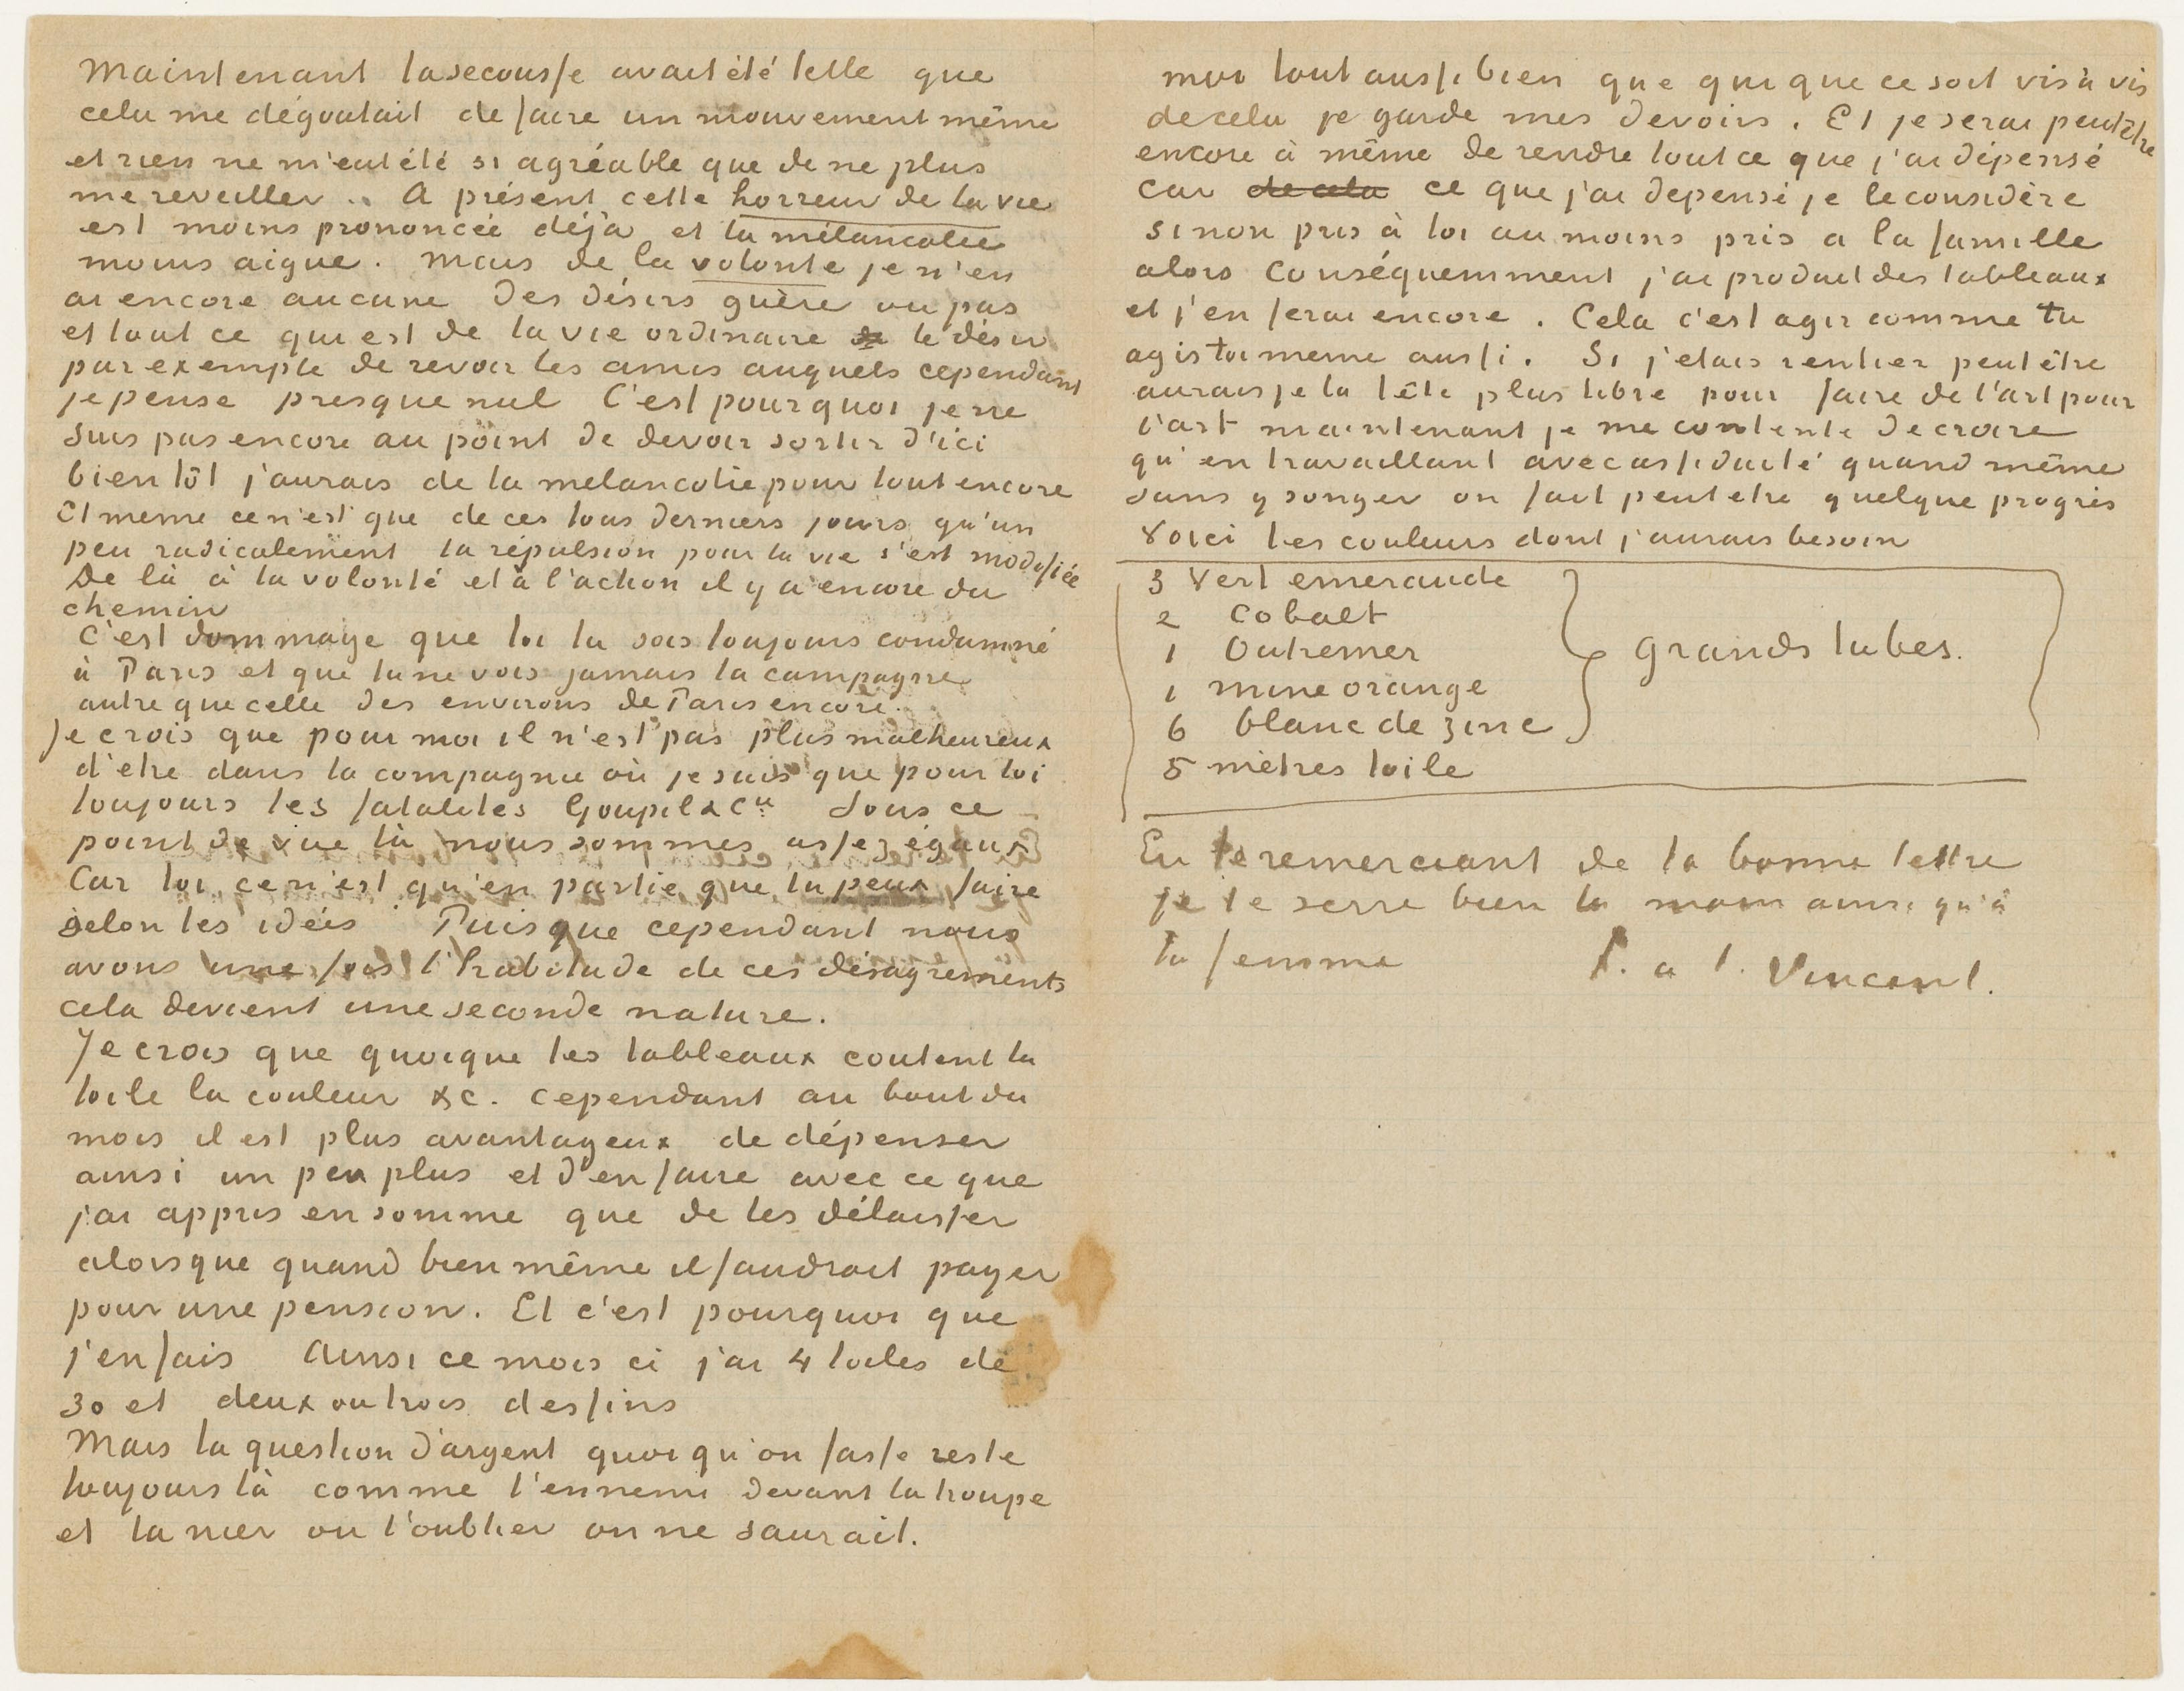 Maintenant la secousse avait été telle que
cela me dégoutait de faire un mouvement même
et rien ne m'eut été si agréable que de ne plus
me reveiller .. A présent cette horreur de la vie
est moins prononcée déjà et la mélancolie
moins aigue. Mais de la volonté je n'en
ai encore aucune Des désirs guère ou pas
et tout ce qui est de la vie ordinaire de le désir
par exemple de revoir les amis auquels cependant
je pense presque nul C'est pourquoi je ne
suis pas encore au point de devoir sortir d'ici
bientôt j'aurais de la melancolie pour tout encore
Et meme ce n'est que de ces tous derniers jours qu'un
peu radicalement la répulsion pour la vie s'est modifiée
De là à la volonté et à l'action il y a encore du
chemin
C'est dommage que toi tu sois toujours condamné
à Paris et que tu ne vois jamais la campagne
autre que celle des environs de Paris encore.
Je crois que pour moi il n'est pas plus malheureux
d'etre dans la compagnie où je suis que pour toi
toujours les fatalites Goupil & Cie Sous ce
point de vue là nous sommes assez égaux
Car toi ce n'est qu'en partie que tu peux faire
selon tes idées Puisque cependant nous
avons une fois l'habitude de ces désagrements
cela devient une seconde nature.
Je crois que quoique les tableaux coutent la
toile la couleur &c. cependant au bout du
mois il est plus avantageux de dépenser
ainsi un peu plus et d'en faire avec ce que
j'ai appris en somme que de les délaisser
alorsque quand bien même il faudrait payer
pour une pension. Et c'est pourquoi que
j'en fais Ainsi ce mois ci j'ai 4 toiles de
30 et deux ou trois dessins
Mais la question d'argent quoi qu'on fasse reste
toujours là comme l'ennemi devant la troupe
et la nier ou l'oublier on ne saurait.
moi tout aussi bien que qui que ce soit vis à vis
de cela je garde mes devoirs. Et je serai peut être
encore à même de rendre tout ce que j'ai dépensé
car de cela ce que j'ai depensé je le considère
sinon pris à toi au moins pris a la famille
alors conséquemment j'ai produit des tableaux
et j'en ferai encore. Cela c'est agir comme tu
agis toi meme aussi. Si j'etais rentier peut être
aurais je la tête plus libre pour faire de l'art pour
l'art maintenant je me contente de croire
qu'en travaillant avec assiduité quand même
sans y songer on fait peut etre quelque progrès
Voici les couleurs dont j'aurais besoin
3 Vert emeraude
2 Cobalt
1 Outremer
grands tubes.
1 mine orange
6 blanc de zinc
5 mètres toile
En te remerciant de ta bonne lettre
je te serre bien la main ainsi qu'à
ta femme t. à t. Vincent.